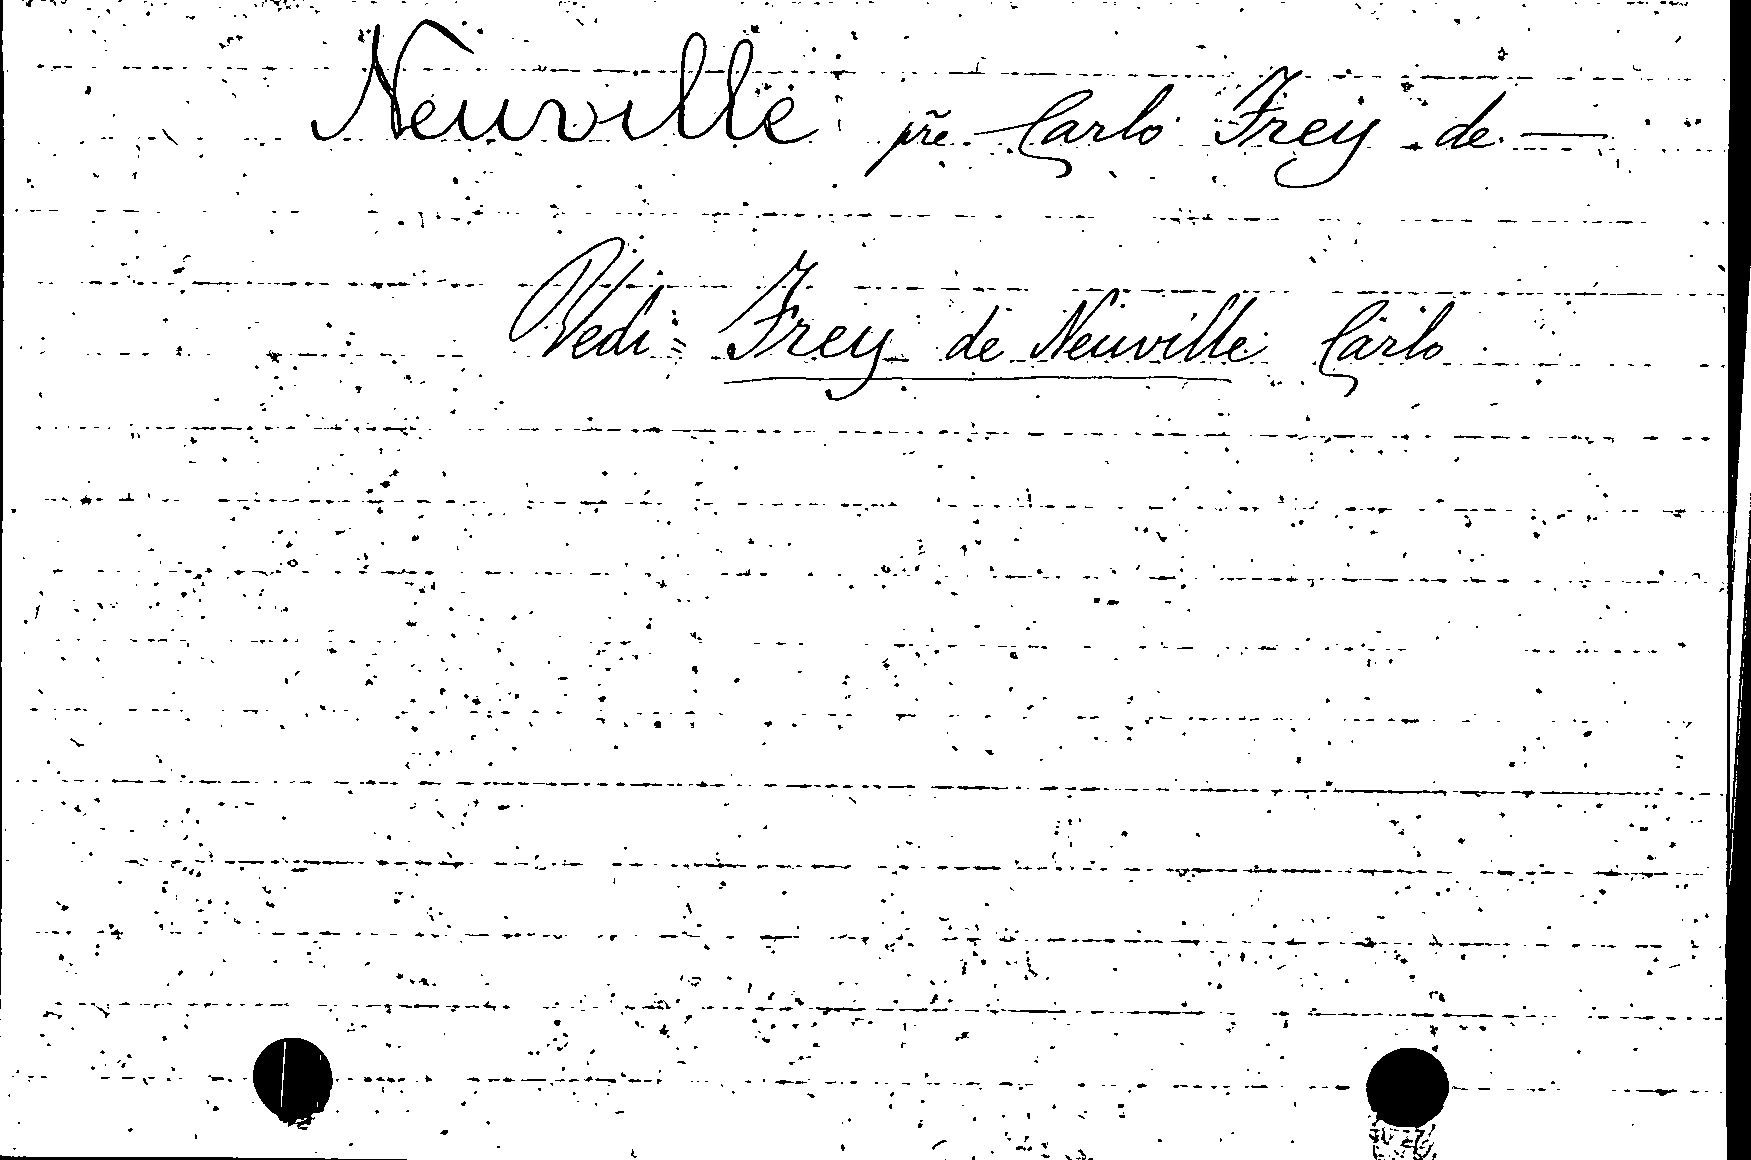 Neuville pre Carlo Frey de —
Vedi = Frey de Neuville Carlo